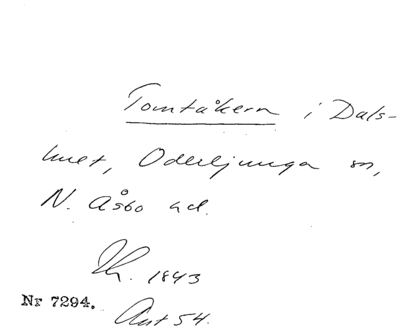 Tomtåkern i Dals-
huet, Oderljunga sn,
N. Åsbo hd.
Ih. 1843
Nr 7294.
Ant 54.